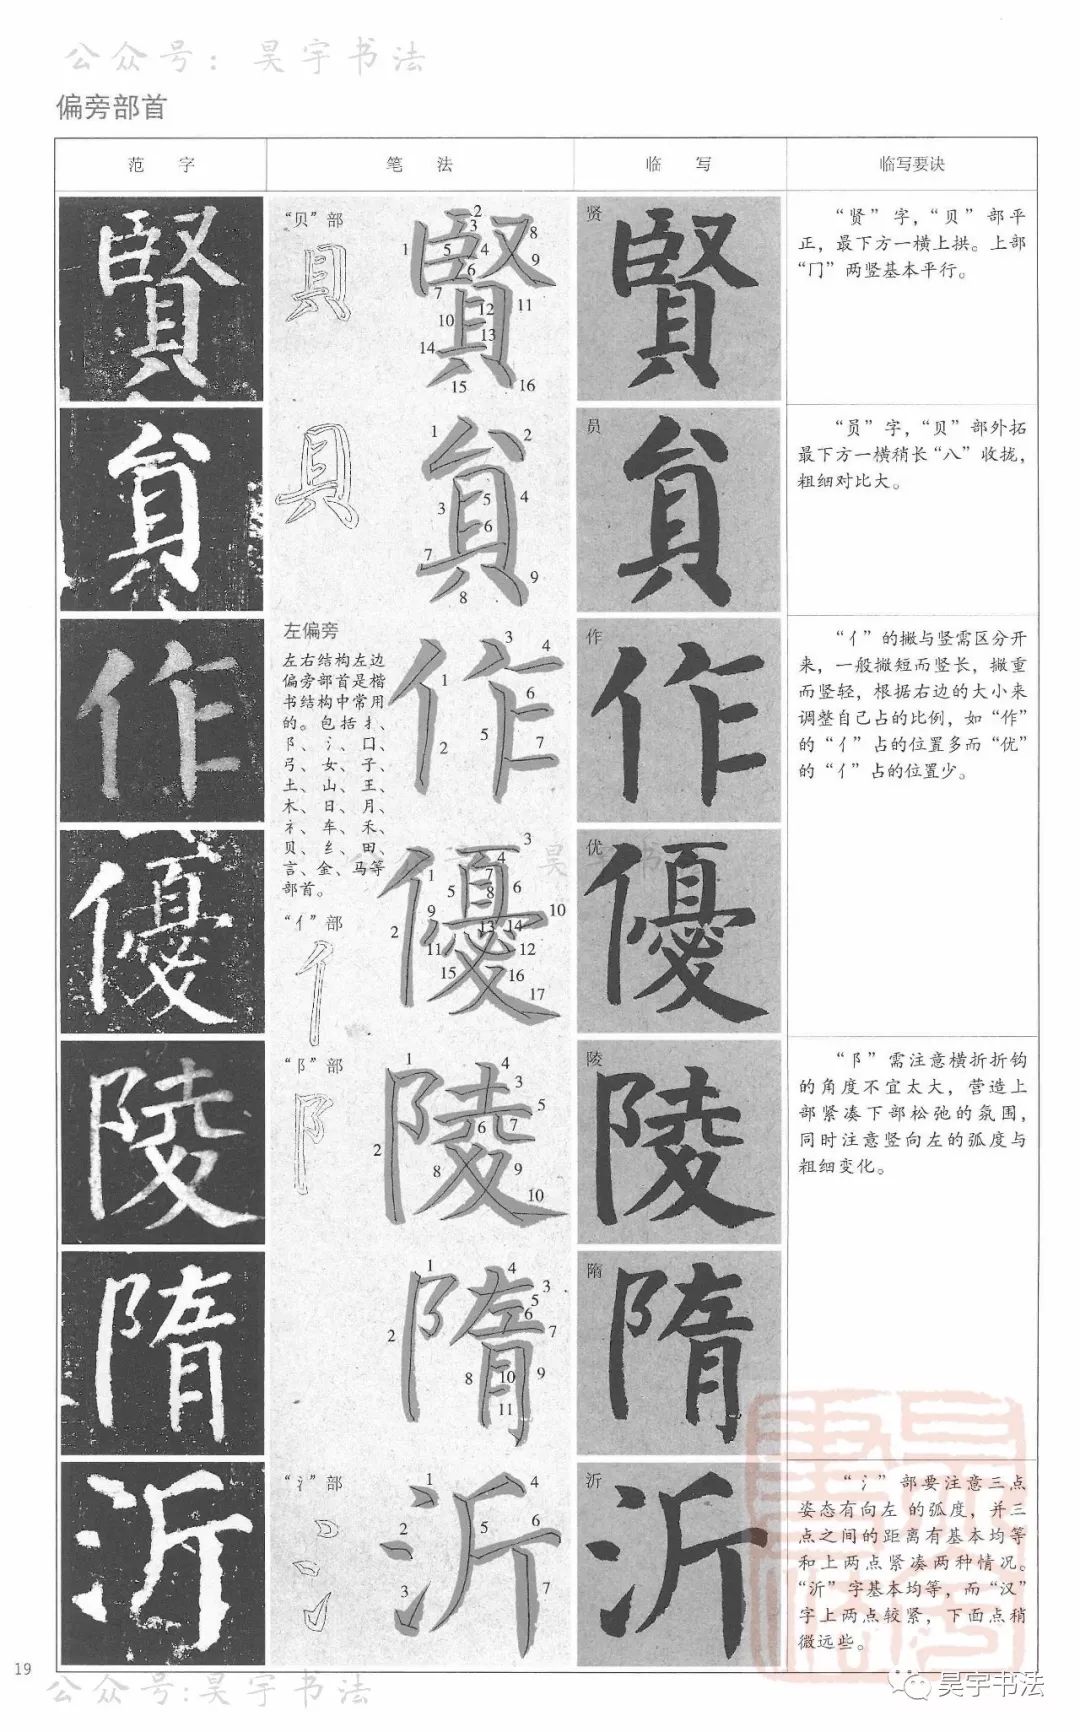 公众号：昊宇书法
偏旁部首
范 字
笔 法
临 写
临写要诀
賢
“贝”部
貝
賢
1 2 3 4 5 6 7 8 9 10 11 12 13 14 15 16
贤
賢
“贤”字，“贝”部平
正，最下方一横上拱。上部
“冂”两竖基本平行。
員
貝
員
1 2 3 4 5 6 7 8 9
员
員
“员”字，“贝”部外拓
最下方一横稍长“八”收拢，
粗细对比大。
作
左偏旁
左右结构左边
偏旁部首是楷
书结构中常用
的。包括扌、
阝、氵、口、
弓、女、子、
土、山、王、
木、日、月、
礻、车、禾、
贝、纟、田、
言、金、马等
部首。
作
1 2 3 4 5 6 7
作
作
“亻”的撇与竖需区分开
来，一般撇短而竖长，撇重
而竖轻，根据右边的大小来
调整自己占的比例，如“作”
的“亻”占的位置多而“优”
的“亻”占的位置少。
優
“亻”部
亻
優
1 2 3 4 5 6 7 8 9 10 11 12 13 14 15 16 17
昊 书
优
優
陵
“阝”部
阝
陵
1 2 3 4 5 6 7 8 9 10
陵
陵
“阝”需注意横折折钩
的角度不宜太大，营造上
部紧凑下部松弛的氛围，
同时注意竖向左的弧度与
粗细变化。
隋
隋
1 2 3 4 5 6 7 8 9 10 11
隋
隋
沂
“氵”部
氵
沂
1 2 3 4 5 6 7
沂
沂
“氵”部要注意三点
姿态有向左 的弧度，并三
点之间的距离有基本均等
和上两点紧凑两种情况。
“沂”字基本均等，而“汉”
字上两点较紧，下面点稍
微远些。
19
公众号:昊宇书法
昊宇书法